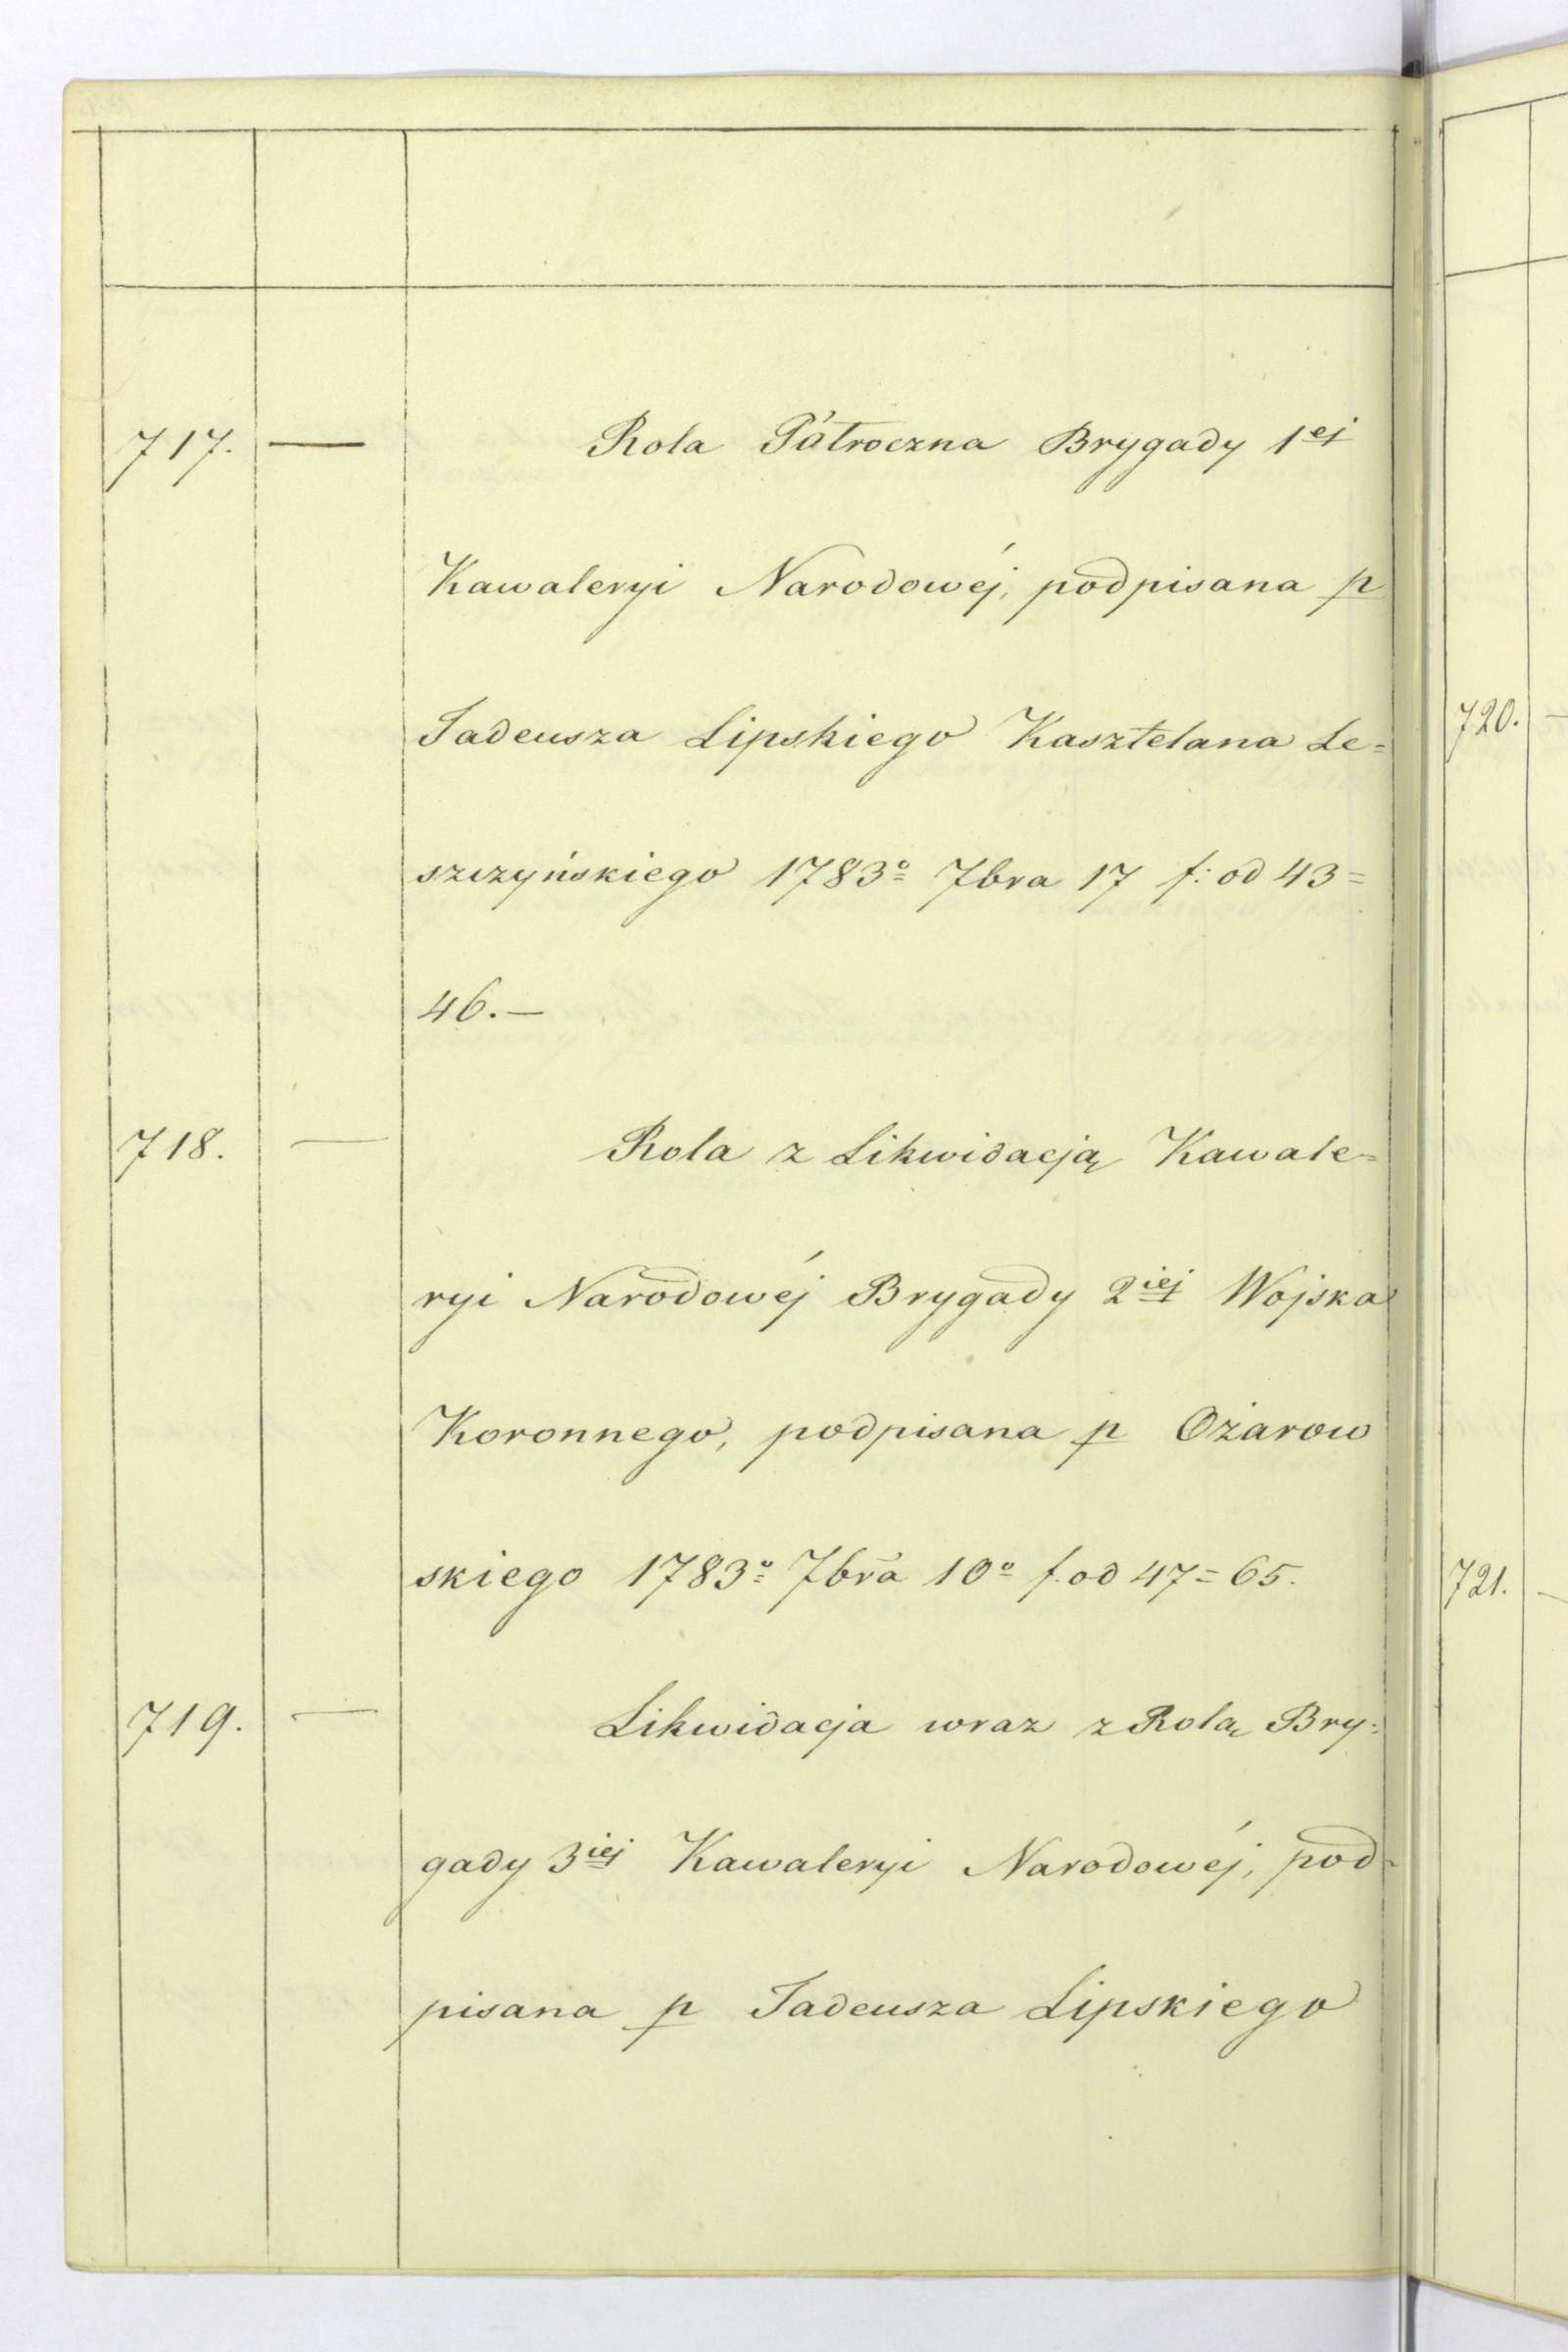 717. — Rola Pátroczna Brygady 1ej
Kawaleryi Narodowéj, podpisana p
Tadeusza Lipskiego Kasztelana Le=
szczyńskiego 1783o 7bra 17 f: od 43=
46.—
718. — Rola z Likwidacją Kawale=
ryi Narodowéj Brygady 2iej Wojska
Koronnego, podpisana p Ożarow
skiego 1783o 7bra 10o f. od 47=65.
719. — Likwidacja wraz z Rolą Bry=
gady 3iej Kawaleryi Narodowéj, pod-
pisana p Tadeusza Lipskiego
720.
721.